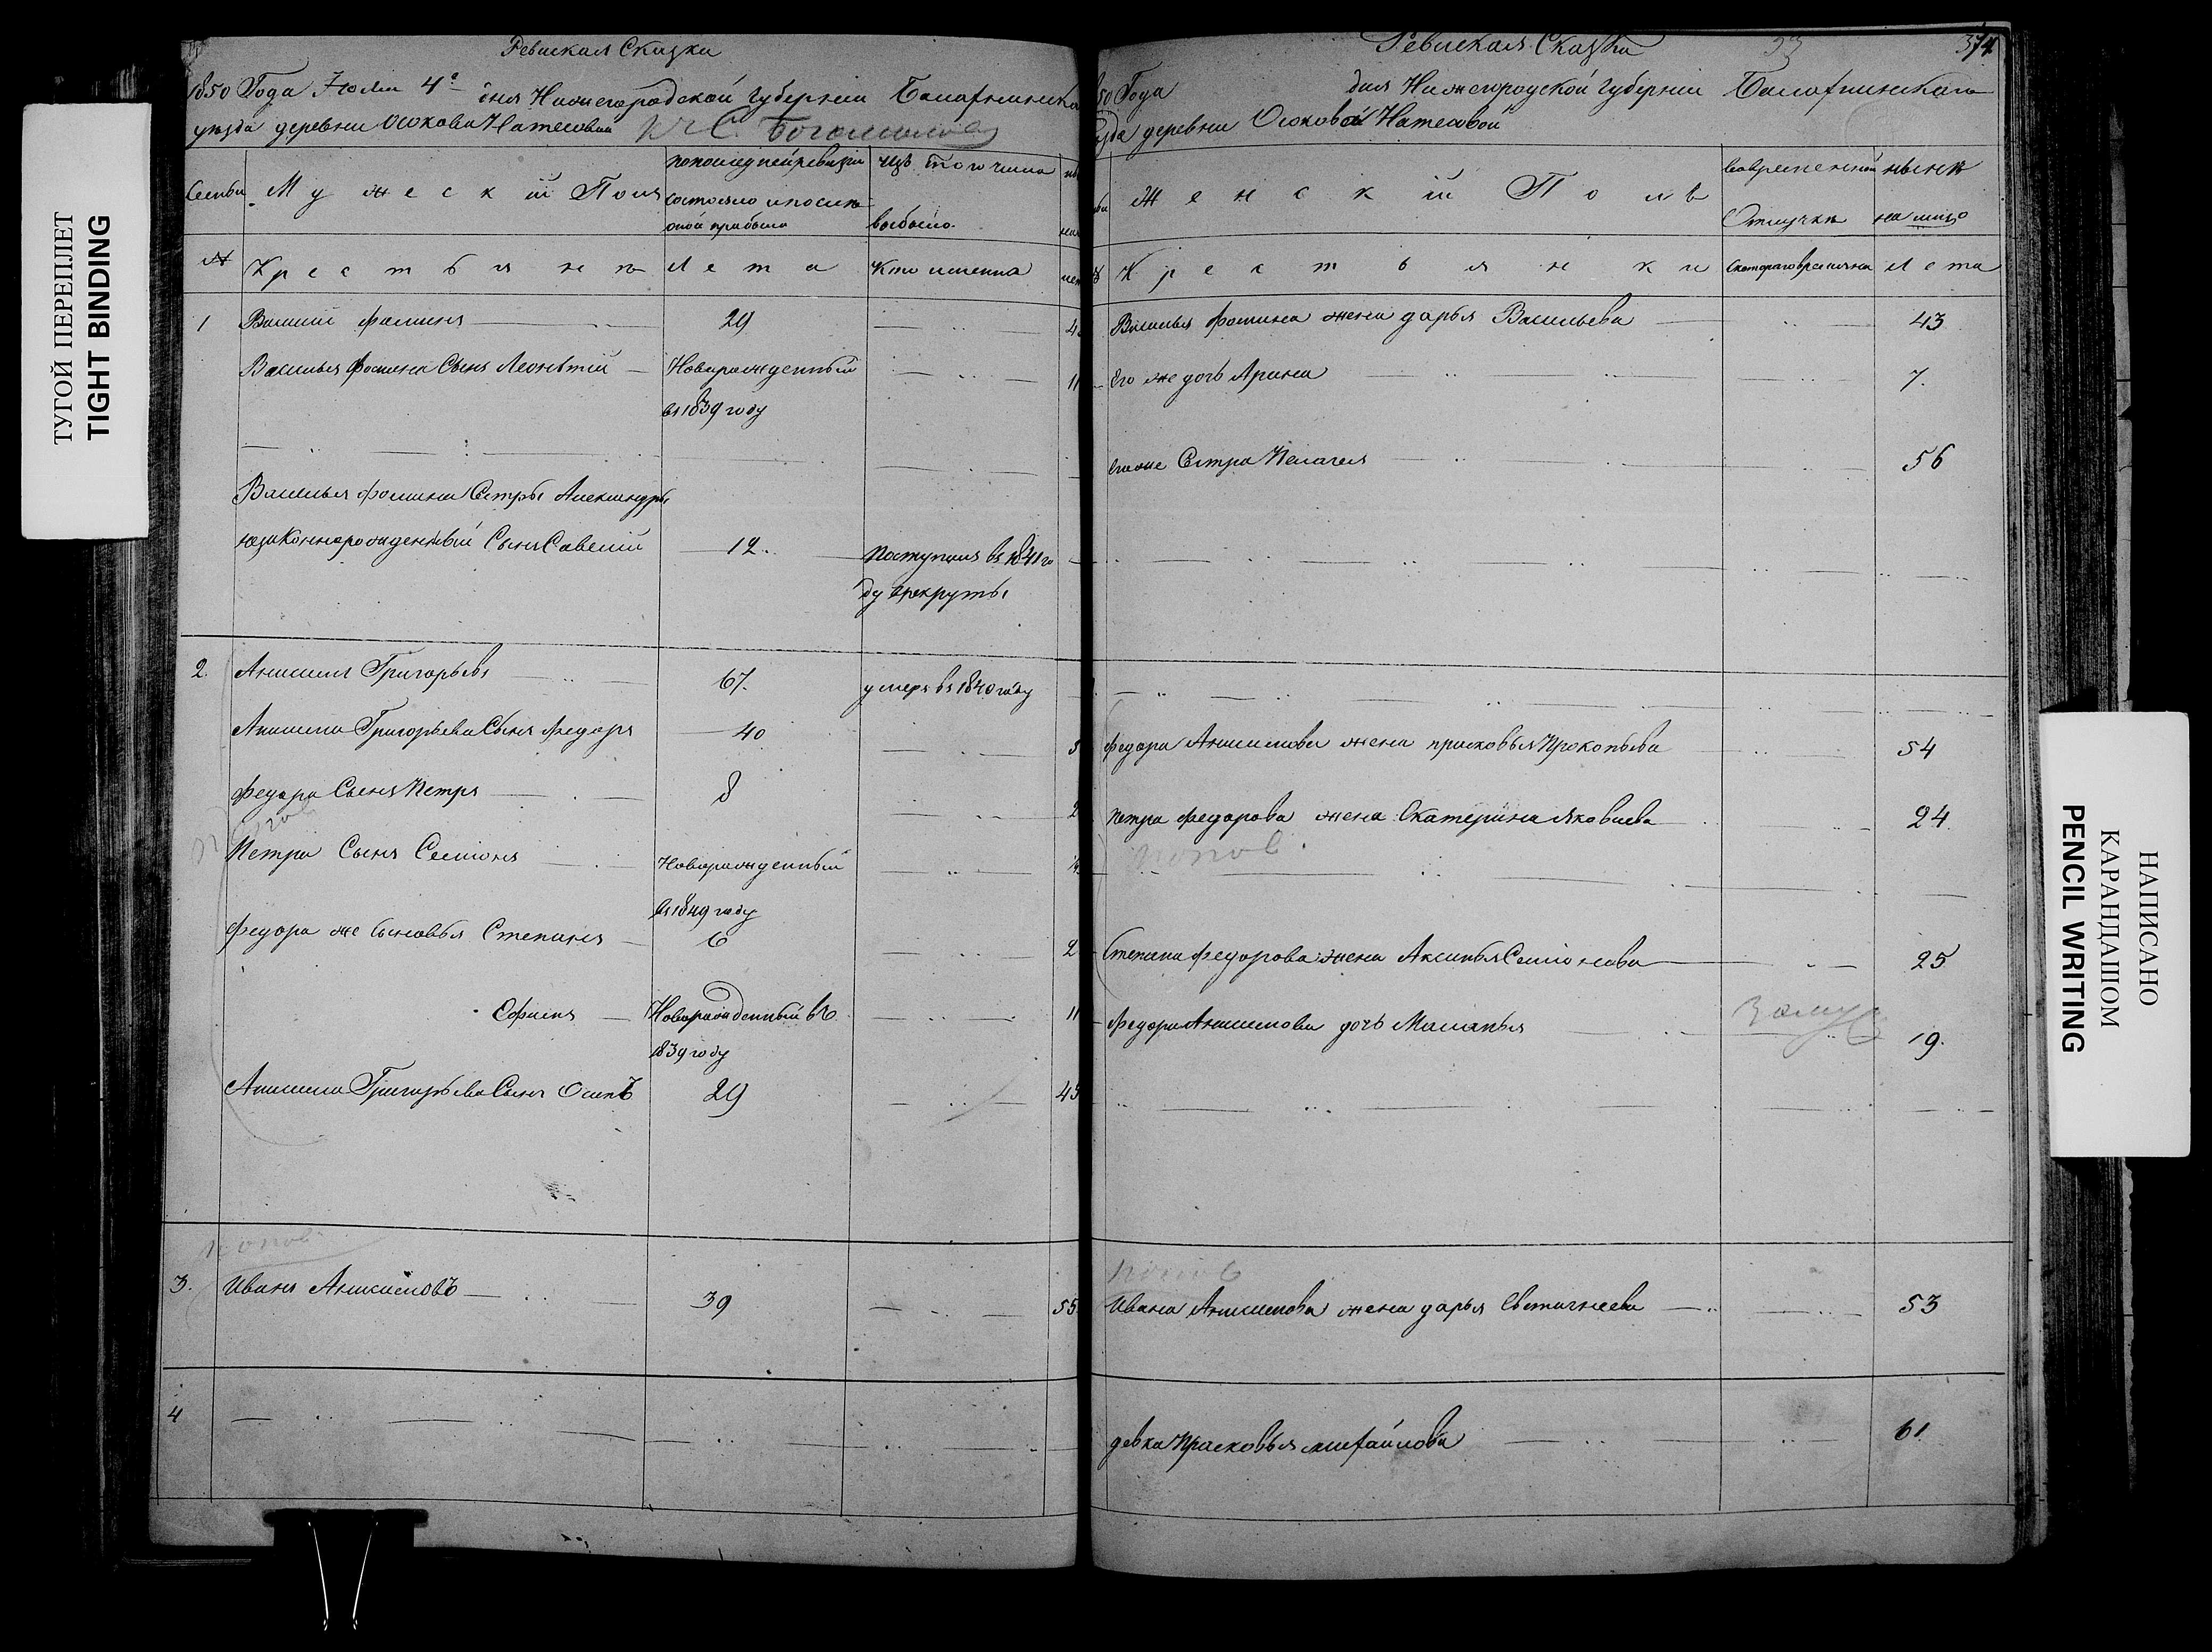 ТУГОЙ ПЕРЕПЛЕТ
TIGHT BINDING
Ревиская Сказка
1850 Года Июля 4го дня Нижегородской Губернии Балахнинска
уезда деревни Осокова
Семьи
Мужеский Полъ
по последней ревизии
состояло и после
оной прибыло
изъ того числа
выбыло
№
Крестьянъ
Лета
Кто именно
1 Василий Фоминъ 29
Василья Фомина Сынъ Леонтий Новорожденный
въ 1839 году
Василья Фомина Сестры Александры
незаконнорожденный Сынъ Савелий 12 Поступилъ въ 1841 го
ду в рекруты
2. Анисимъ Григорьевъ 67. умеръ въ 1840 году
Анисима Григорьева Сынъ Федоръ 40
Федора Сынъ Петръ 8
Петра Сынъ Семионъ Новорожденный
въ 1849 году
Федора же сыновья Степанъ 6
Ефимъ Новорожденный въ
1839 году
Анисима Григорьева Сынъ Осипъ 29 45
попов
3. Иванъ Аникимовъ 39 55
4
Ревиская Сказка 374
50 Года дня Нижегородской Губернии Балахнинскаго
деревни Осоковой
Женский Полъ
Во временной
Отлучке
ныне
на лицо
Крестьянки
Скотораго времяна
Лета
Василья Фомина жена дарья Васильева 43
Его же дочь Арина 7.
Его же Сестра Пелагея 56
Федора Анисимова жена прасковья Прокопьева 54
Петра Федорова жена Екатерина Яковлева 24
попов
Степана Федорова жена Аксинья Семионова 25
Федора Анисимова дочь Маланья Замуж 19.
попов
Ивана Аникимова жена дарья Евстигнеева 53
девка Прасковья михайлова 61
НАПИСАНО
КАРАНДАШОМ
PENCIL WRITING